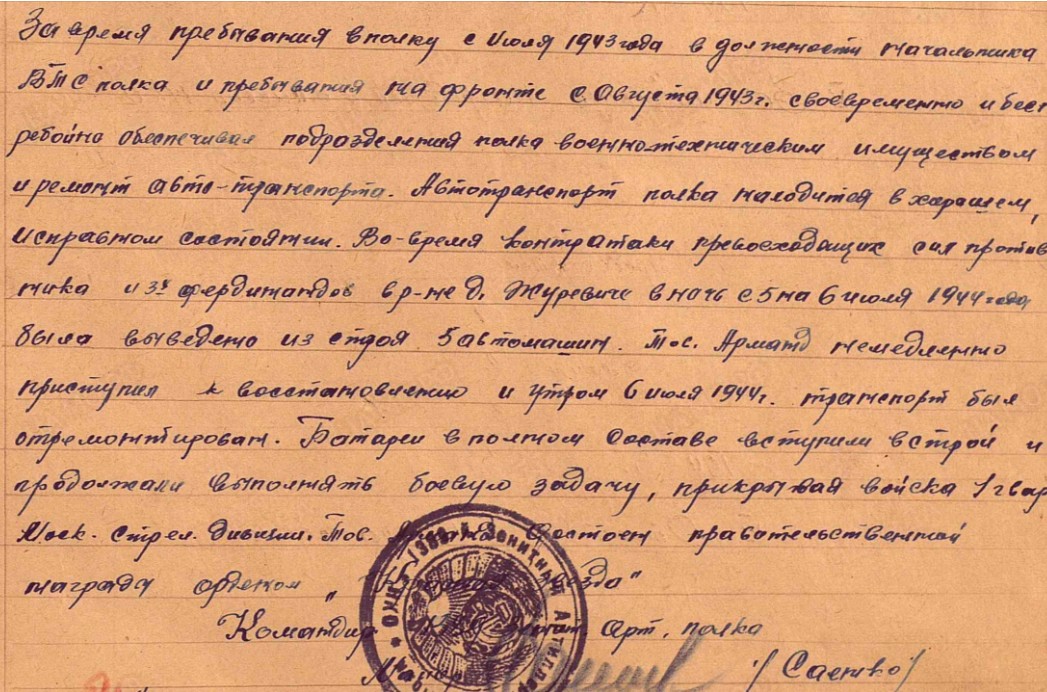 За время пребывания в полку с Июля 1943 года в должности начальника
ВТС полка и пребывания на фронте с Августа 1943г. своевременно и бесп
ребойно обеспечивал подразделения полка военно-техническим имуществом
и ремонт авто-транспорта. Автотранспорт полка находится в харошем,
исправном состоянии. Во-время контратаки превосходящих сил против
ника и 3х фердинандов в р-не д. Журевичи в ночь с 5 на 6 июля 1944 года
была выведено из строя 5 автомашин. Тов. Арманд немедленно
приступил к восстановлению и утром 6 июля 1944г. транспорт был
отремонтирован. Батареи в полном составе вступили в строй и
продолжали выполнять боевую задачу, прикрывая войска 1 гвар
Моск. стрел. дивизии. Тов. достоен правательственной
награды орденом "
Командир Арт. полка
/ Саенко /
Зенитный Артиллер